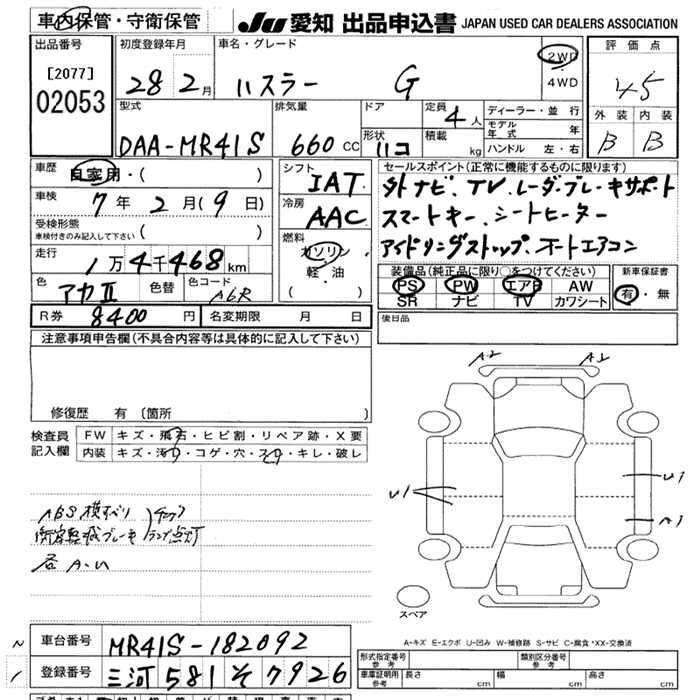 車内保管・守衛保管
JU 愛知 出品申込書 JAPAN USED CAR DEALERS ASSOCIATION
出品番号
[2077]
02053
初度登録年月
28 2月
車名・グレード
ハスラー G
2WD
4WD
評価点
4.5
外装 内装
B B
型式
DAA-MR41S
排気量
660 CC
ドア
形状
ハコ
定員
4人
積載
kg
ディーラー・並行
モデル年式 年
ハンドル 左・右
車歴
自家用・( )
車検
7年 2月(9日)
受検形態
車検付きのみ記入して下さい ( )
走行
1万4千468km
色
アカⅡ
色替
色コード
A6R
R券 8400円
名変期限 月 日
シフト
IAT
冷房
AAC
燃料
ガソリン
軽・油
( )
セールスポイント(正常に機能するものに限ります)
外ナビ、TV、レーダーブレーキサポート
スマートキー、シートヒーター
アイドリングストップ、オートエアコン
装備品(純正品に限り○をつけてください)
PS PW エアB AW
SR ナビ TV カワシート
新車保証書
有・無
後日品
注意事項申告欄(不具合内容等は具体的に記入して下さい)
修復歴 有〔箇所
検査員記入欄
FW キズ・飛石・ヒビ割・リペア跡・X要
内装 キズ・汚れ・コゲ・穴・スレ・キレ・破レ
ABS 横すべり
衝突軽減ブレーキ
ランプ点灯
各 A-U
A2 A1
U1 U1
A1
スペア
A-キズ E-エクボ U-凹み W-補修跡 S-サビ C-腐食 *XX-交換済
車台番号
MR41S-182092
登録番号
三河 581 そ 7926
形式指定番号 参考
類別区分番号 参考
車庫証明用 参考
長さ cm
幅 cm
高さ cm